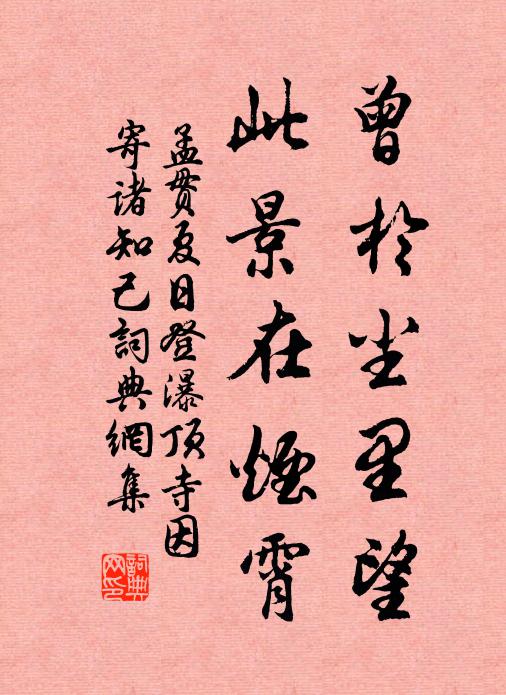 曾於尘里望
此景在烟霄
孟贯夏日登瀑顶寺因
寄诸知己词典網集
詞典
网印